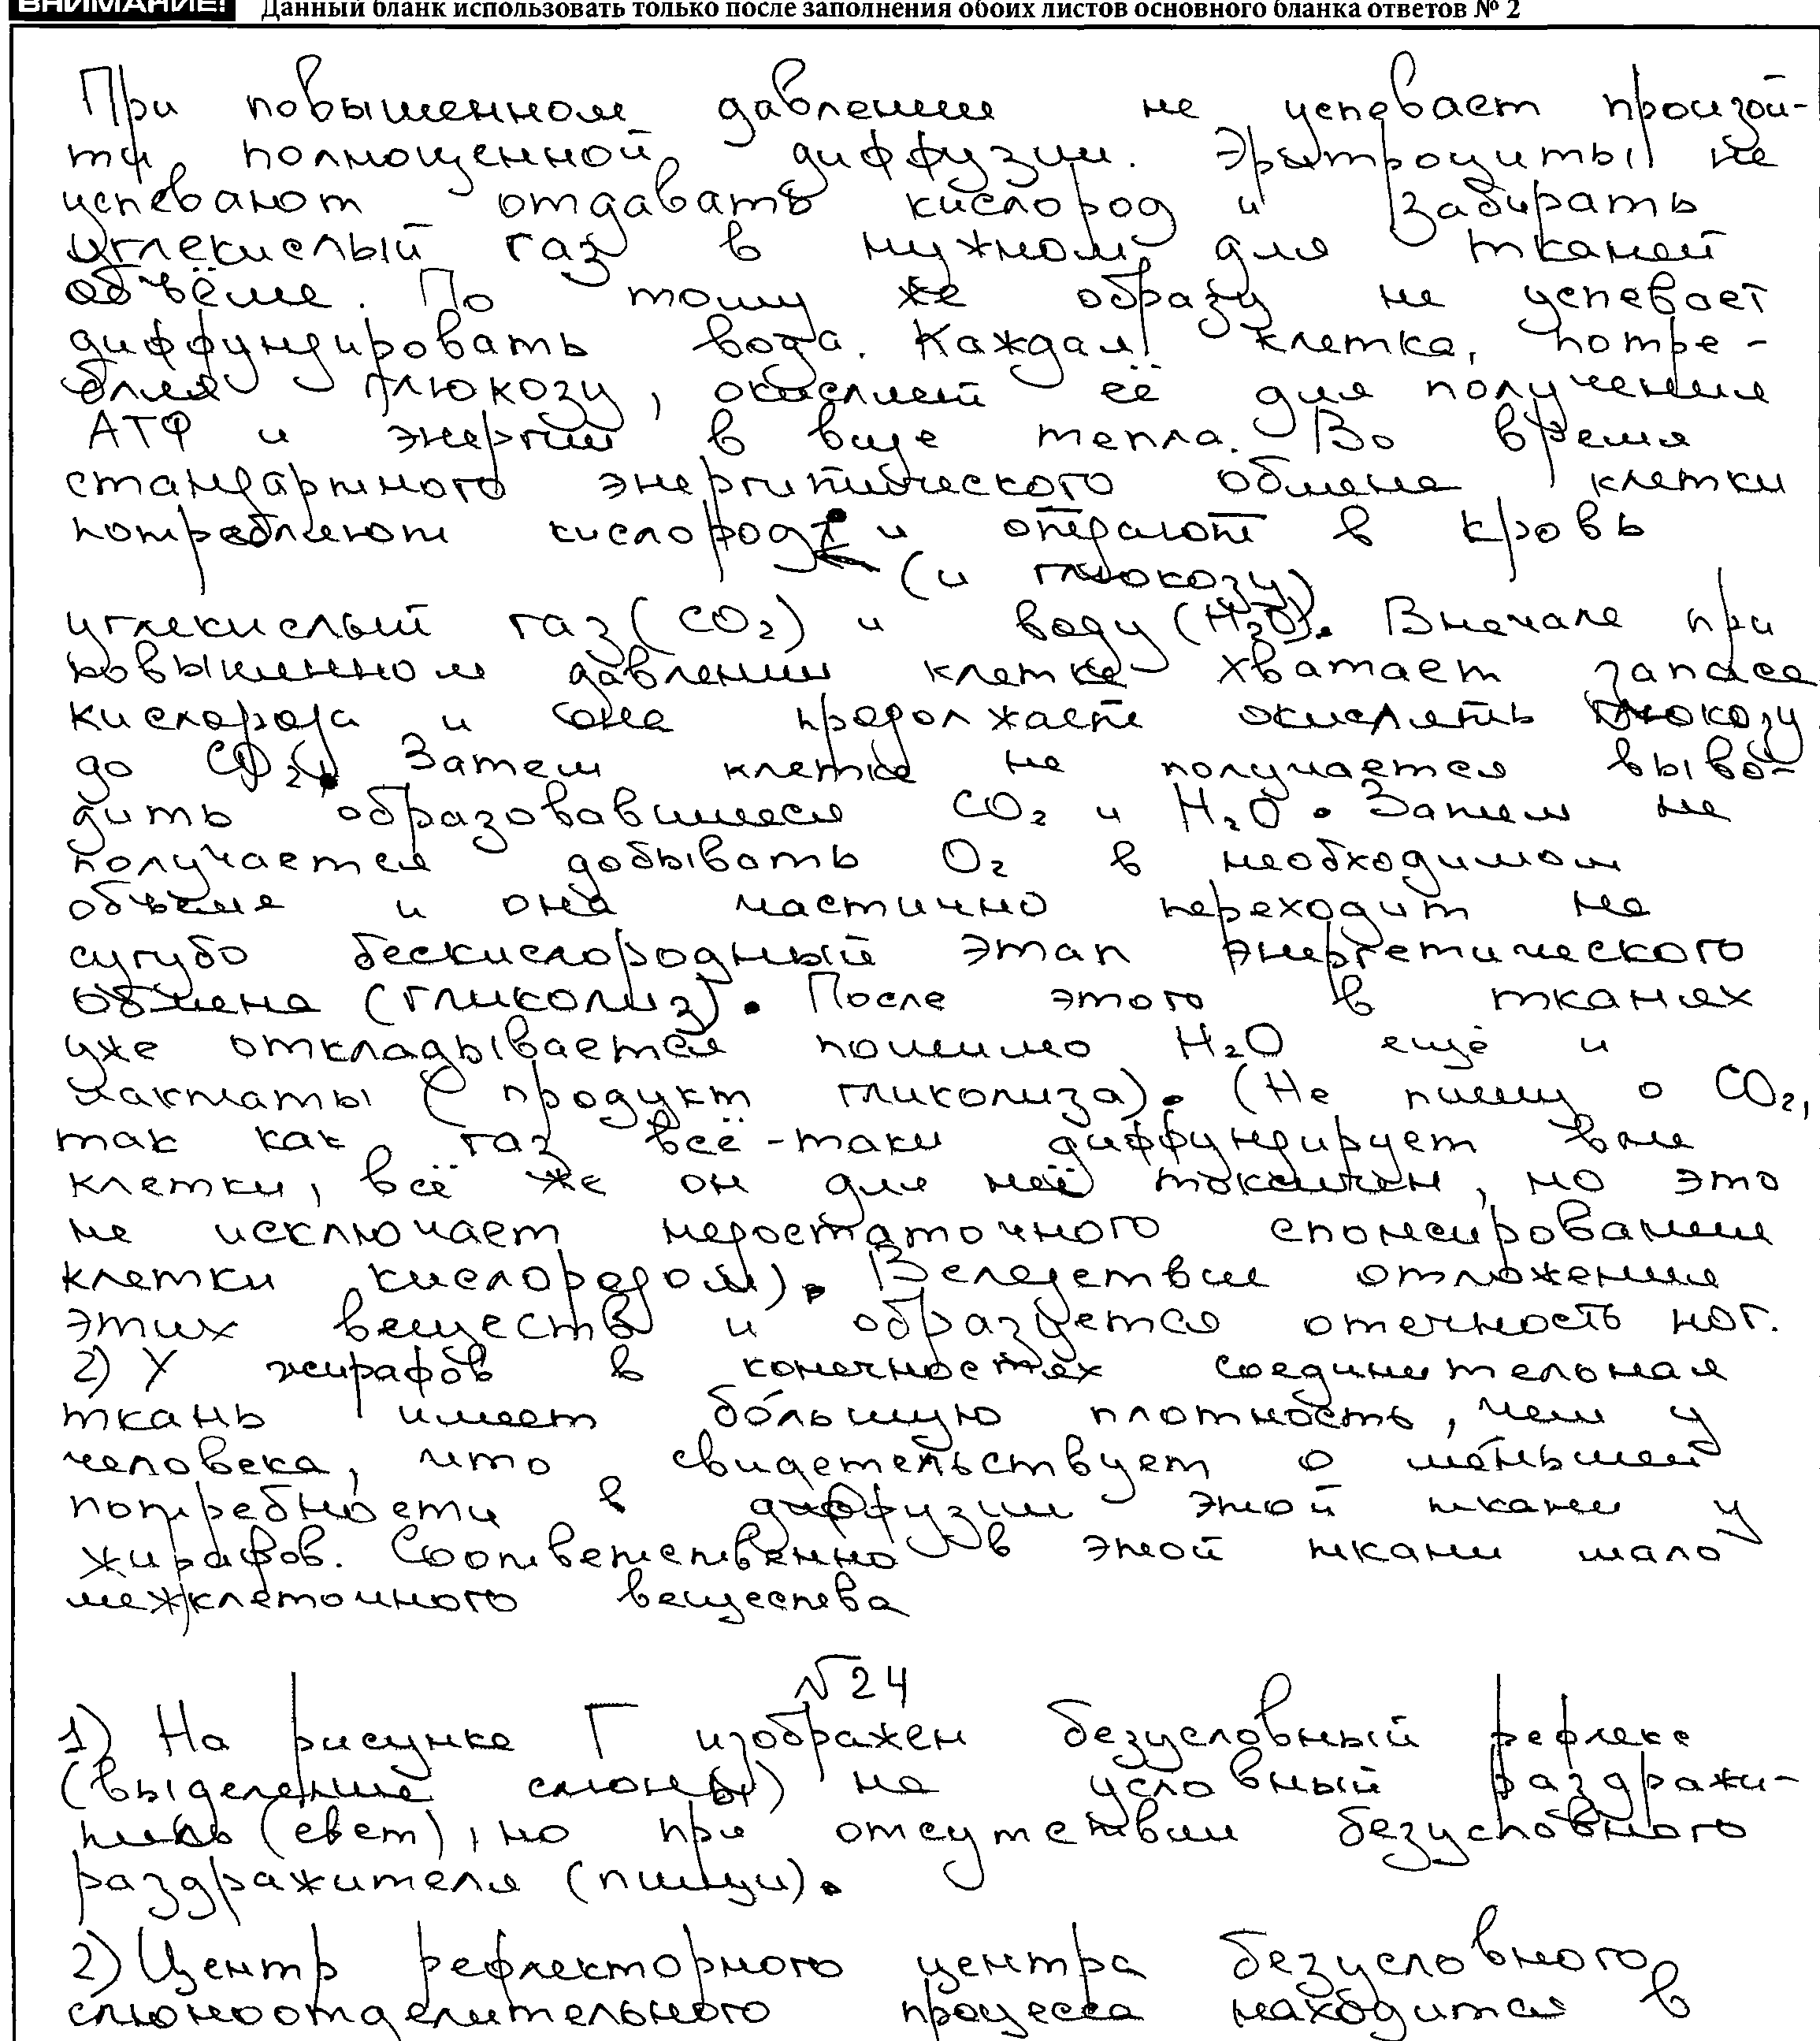 ВНИМАНИЕ! Данный бланк использовать только после заполнения обоих листов основного бланка ответов № 2
При повышенном давлении не успевает произой-
ти полноценной диффузии. Эритроциты не
успевают отдавать кислород и забирать
углекислый газ в нужном для тканей
объёме. По тому же образу не успевает
диффундировать вода. Каждая клетка, потре-
бляя глюкозу, окисляет её для получения
АТФ и энергии в виде тепла. Во время
стандартного энергитического обмена клетки
потребляют кислород и отдают в кровь
(и глюкозу)
углекислый газ (CO₂) и воду (H₂O). Вначале при
повышенном давлении клетке хватает запаса
кислорода и она продолжает окислять глюкозу
до CO₂. Затем клетке не получается выво-
дить образовавшиеся CO₂ и H₂O. Затем не
получается добывать O₂ в необходимом
объёме и она частично переходит на
сугубо бескислородный этап энергетического
обмена (гликолиз). После этого в тканях
уже откладывается помимо H₂O ещё и
лактаты (продукт гликолиза). (Не пишу о CO₂,
так как газ всё-таки диффундирует вне
клетки, всё же он для неё токсичен, но это
не исключает недостаточного спонсирования
клетки кислородом). Вследствии отложения
этих веществ и образуется отечность ног.
2) У жирафов в конечностях соединительная
ткань имеет бо́льшую плотность, чем у
человека, что свидетельствует о ме́ньшей
потребности в диффузии этой ткани у
жирафов. Соответственно в этой ткани мало
межклеточного вещества
№24
1) На рисунке Г изображен безусловный рефлекс
(выделение слюны) на условный раздражи-
тель (свет), но при отсутствии безусловного
раздражителя (пищи).
2) Центр рефлекторного центра безусловного
слюноотделительного процесса находится в